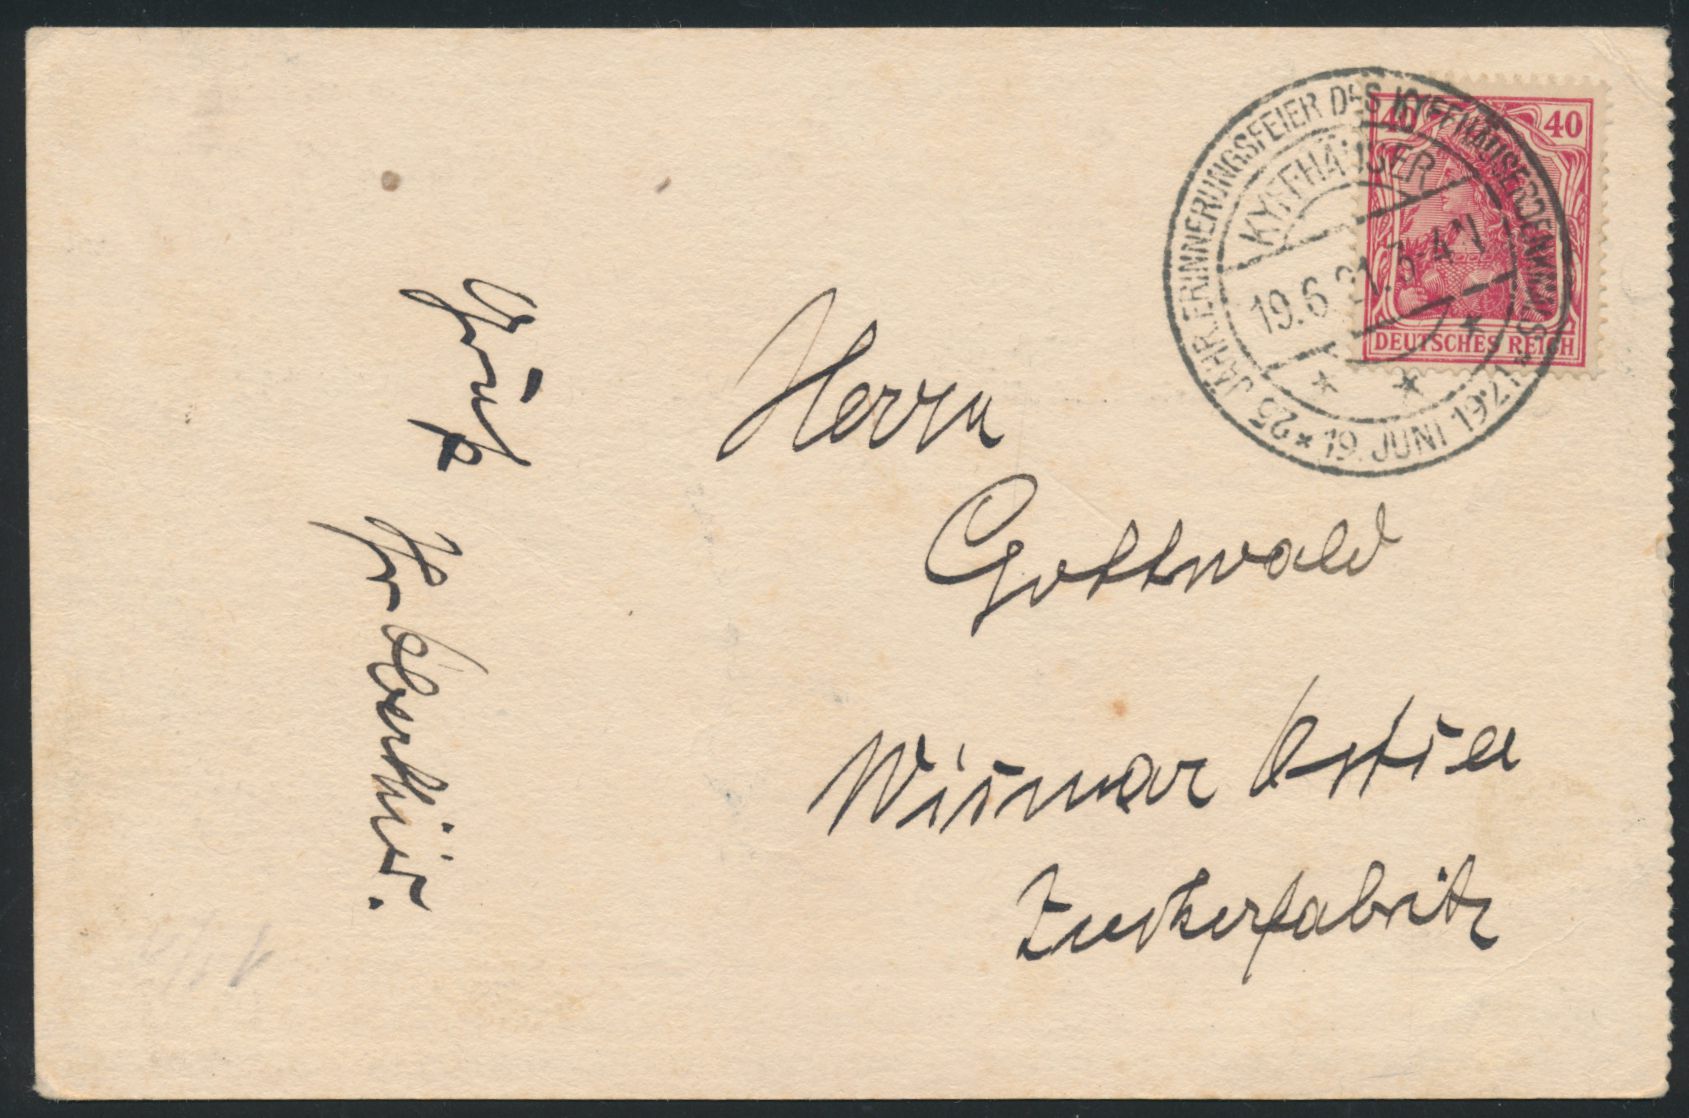 25 JÄHR. ERINNERUNGSFEIER DES KYFFHÄUSERDENKMALS
* 19. JUNI 1921 *
KYFFHÄUSER
19.6.21.3-4N
40 40
DEUTSCHES REICH
Herrn
Gottwald
Wismar Ostsee
Zuckerfabrik
Gruß